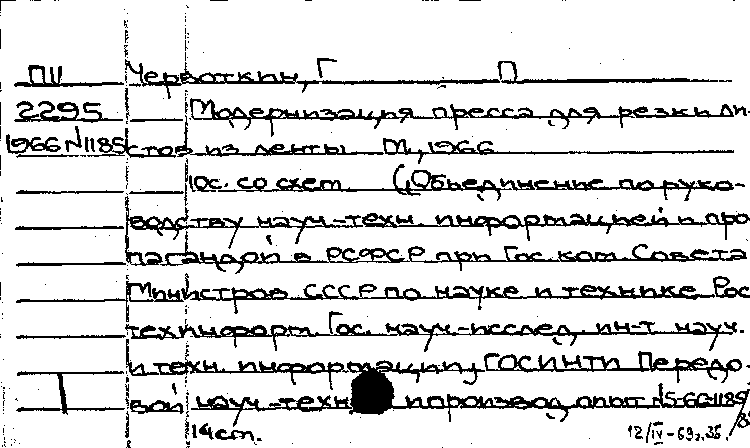 ПЦ Червоткин, Г П
2295 Модернизация пресса для резки ли-
1966 N1185 стов из ленты М, 1966
10с. со схем. (Объединение по руко-
водству науч-техн. информацией и про
пагандой в РСФСР при Гос. ком. Совета
Министров СССР по науке и технике Рос
техинформ. Гос. науч.-исслед. ин-т науч.
и техн. информации, ГОСИНТИ Передо-
вой науч.-техн и производ опыт N5-66-1185/
14cm. 12/IV-69г.